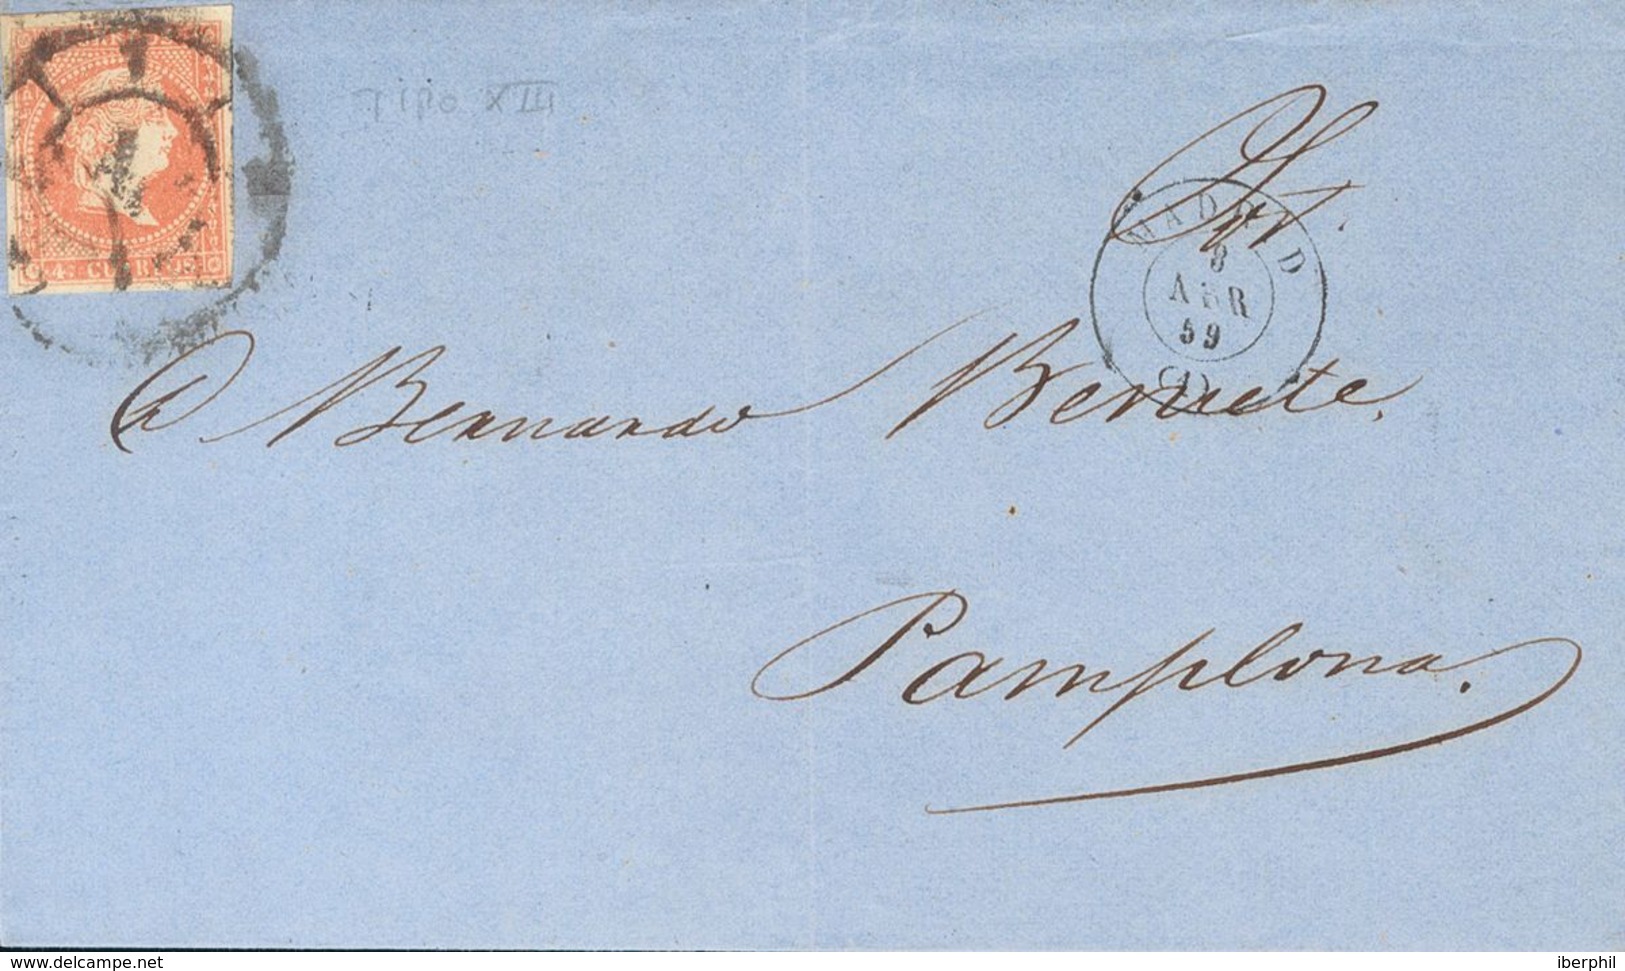 4 CUARTOS
Tipo XIII
Sr.
MADRID
8
ABR
59
(1)
Dn. Bernardo Bernete.
Pamplona.
www.delcampe.net
iberphil